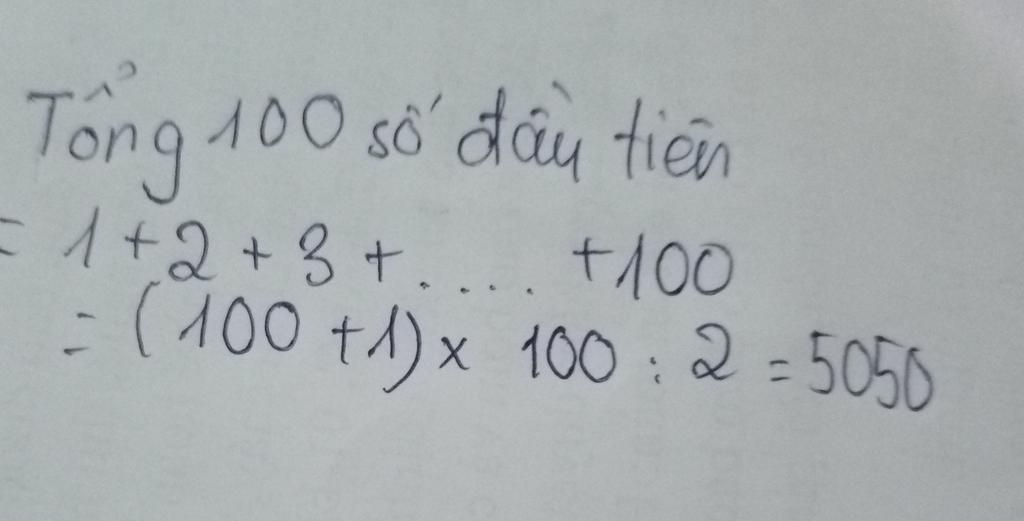 Tổng 100 số đầu tiên
= 1 + 2 + 3 + ..... + 100
= (100 + 1) x 100 : 2 = 5050